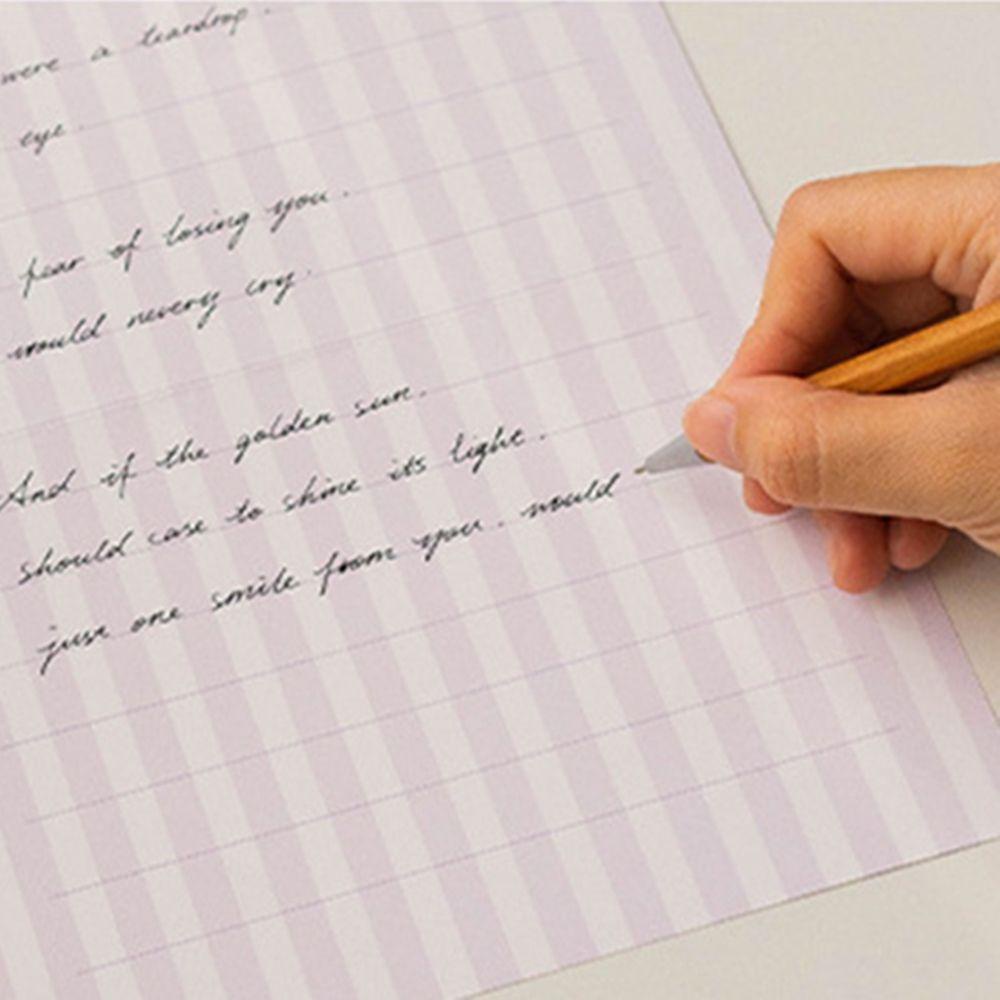 were a teardrop.
eye.
fear of losing you.
would nevery cry.
And if the golden sun.
should case to shine its light.
just one smile from you. would